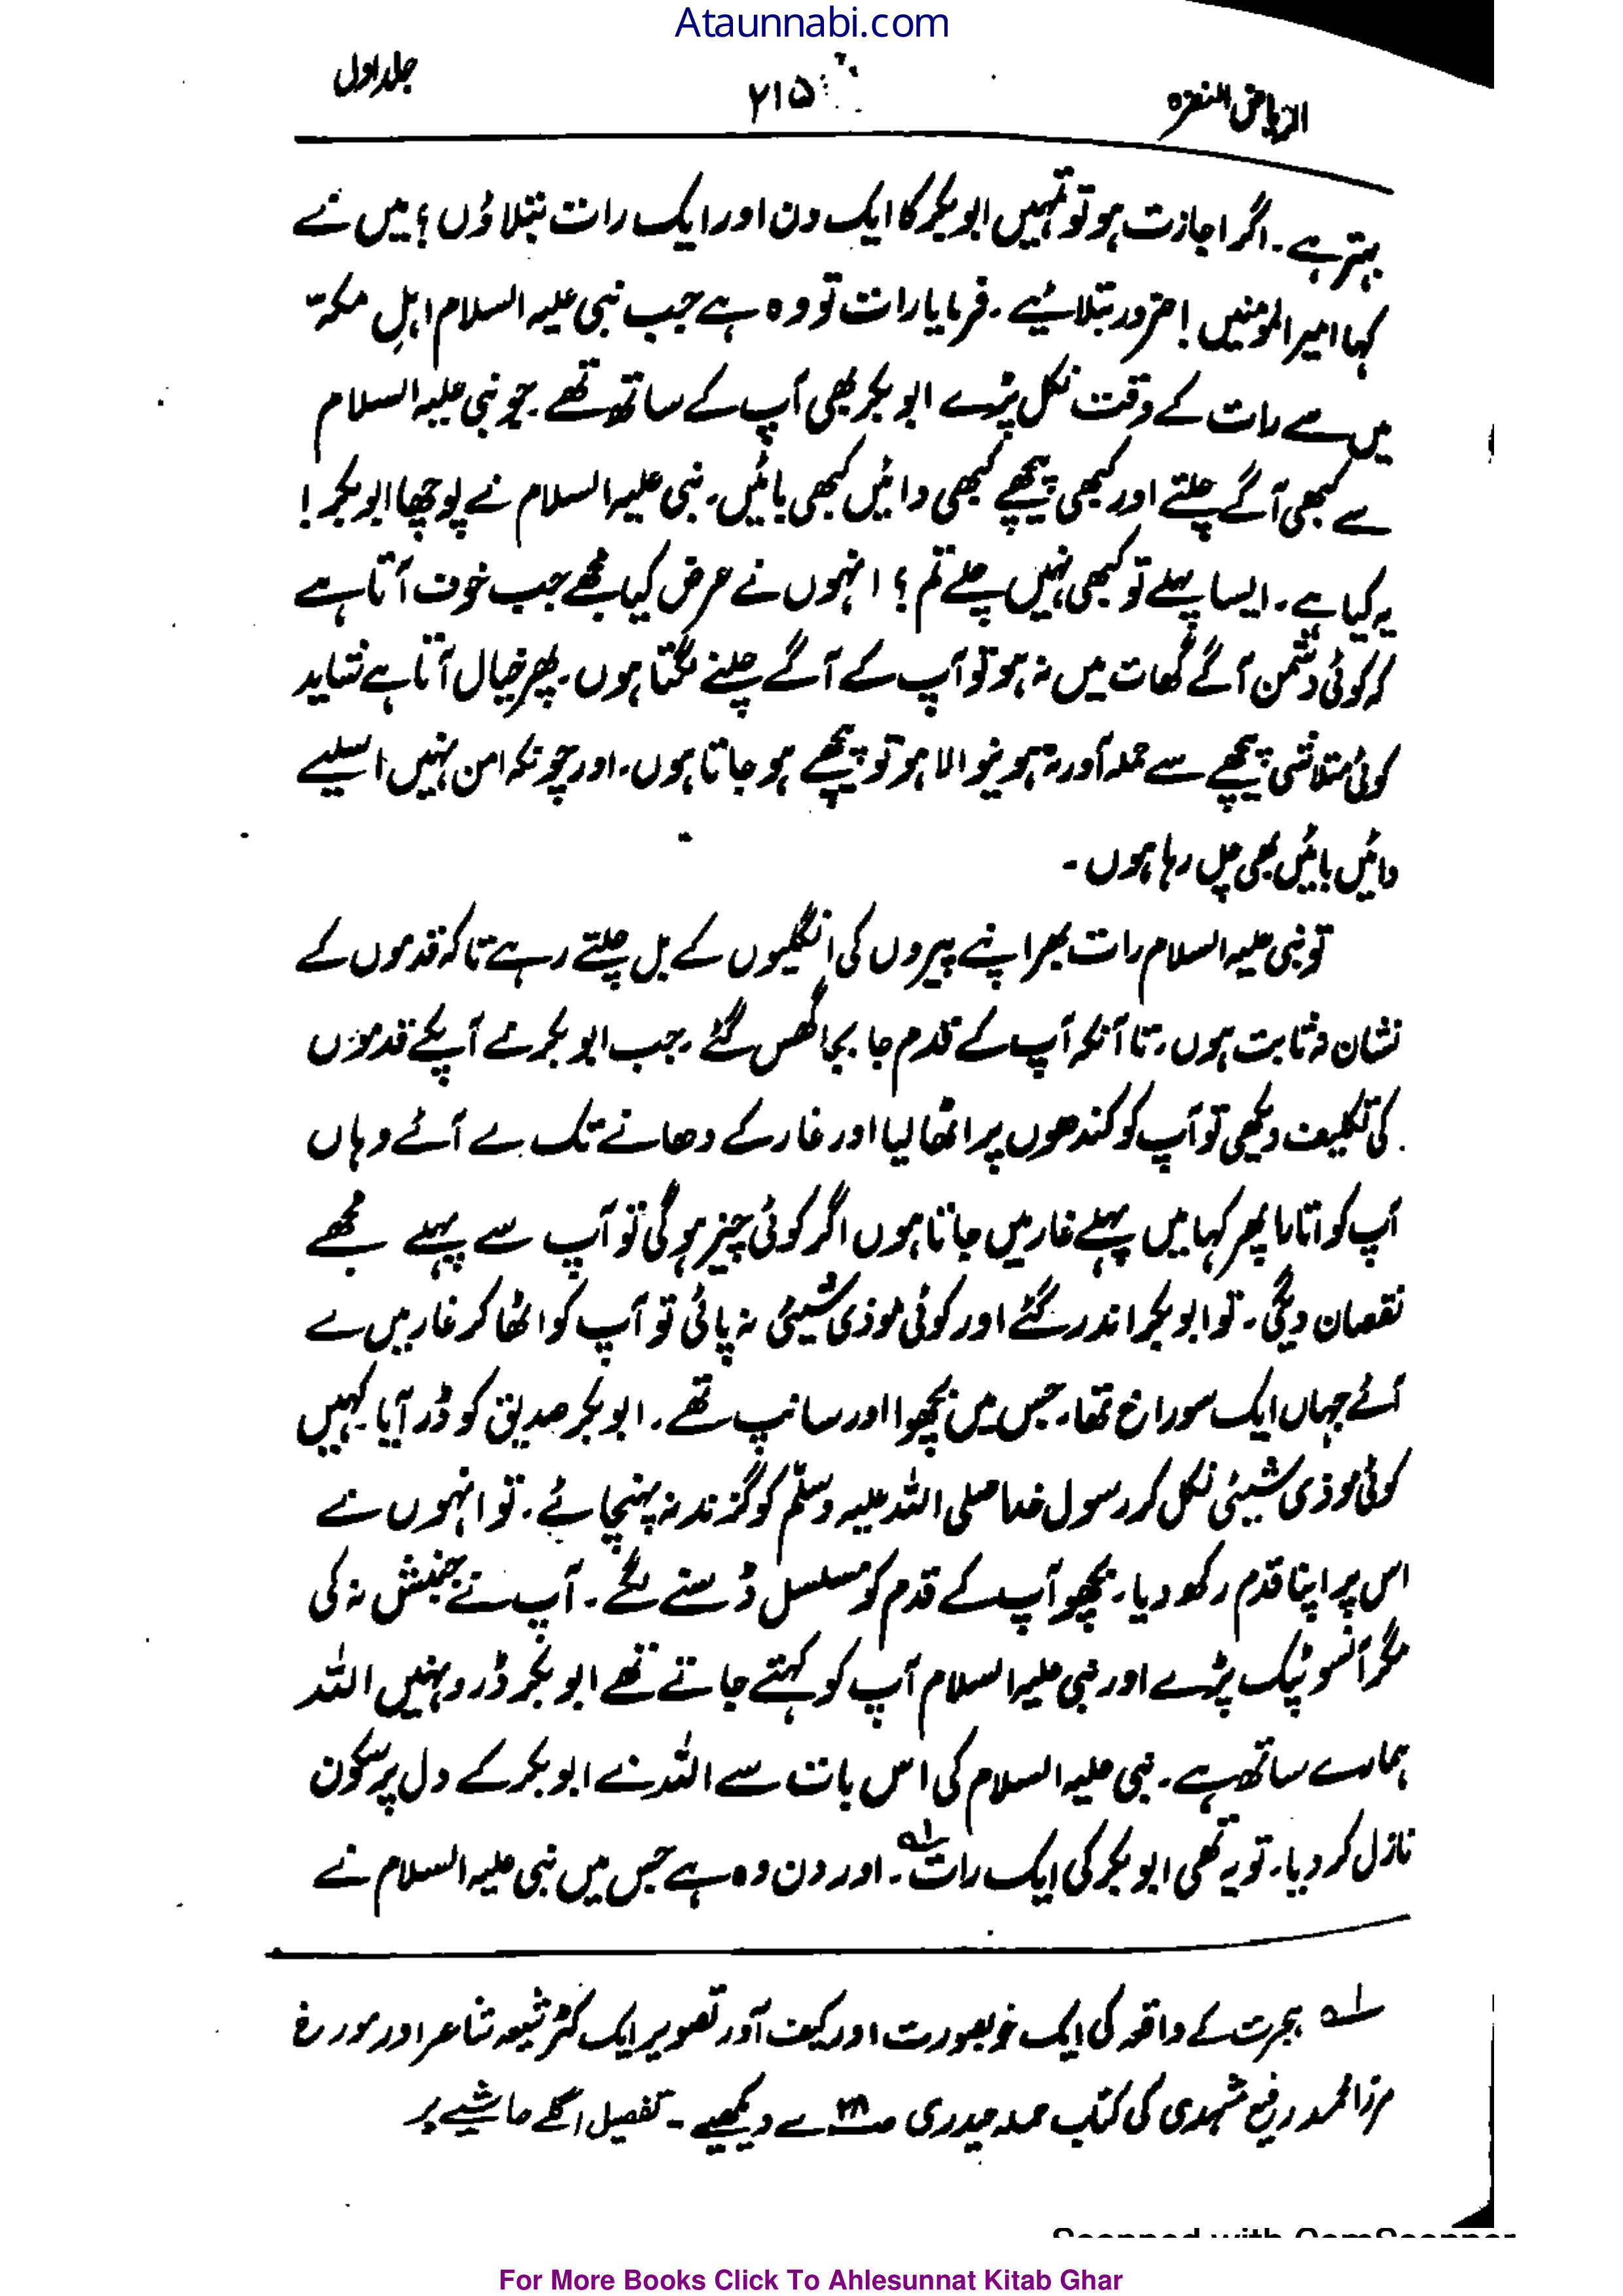 Ataunnabi.com
الریاض النضرہ ۲۱۵ جلد اول
بہتر ہے۔ اگر اجازت ہو تو تمہیں ابوبکر کا ایک دن اور ایک رات بتلاؤں؟ میں نے
کہا امیر المومنین! ضرور بتلائیے۔ فرمایا رات تو وہ ہے جب نبی علیہ السلام اہلِ مکہ
میں سے رات کے وقت نکل پڑے ابوبکر بھی آپ کے ساتھ تھے۔ جو نبی علیہ السلام
سے کبھی آگے چلتے اور کبھی پیچھے کبھی دائیں کبھی بائیں۔ نبی علیہ السلام نے پوچھا ابوبکر!
یہ کیا ہے۔ ایسا پہلے تو کبھی نہیں چلے تم؟ انہوں نے عرض کیا مجھے جب خوف آتا ہے
کہ کوئی دشمن آگے گھات میں نہ ہو تو آپ کے آگے چلنے لگتا ہوں۔ پھر خیال آتا ہے شاید
کوئی متلاشی پیچھے سے حملہ آور نہ ہونیوالا ہو تو پیچھے ہو جاتا ہوں۔ اور چونکہ امن نہیں اسلیے
دائیں بائیں بھی چل رہا ہوں۔
تو نبی علیہ السلام رات بھر اپنے پیروں کی انگلیوں کے بل چلتے رہے تاکہ قدموں کے
نشان نہ ثابت ہوں۔ تا آنکہ آپ کے قدم جا بجا گھس گئے۔ جب ابوبکر نے آپکے قدموں
کی تکلیف دیکھی تو آپ کو کندھوں پر اٹھا لیا اور غار کے دھانے تک لے آئے وہاں
آپ کو اتارا پھر کہا میں پہلے غار میں جاتا ہوں اگر کوئی چیز ہو گی تو آپ سے پہلے مجھے
نقصان دیگی۔ تو ابوبکر اندر گئے اور کوئی موذی شیئی نہ پائی تو آپ کو اٹھا کر غار میں لے
آئے جہاں ایک سوراخ تھا۔ جس میں بچھو اور سانپ تھے۔ ابوبکر صدیق کو ڈر آیا کہیں
کوئی موذی شیئی نکل کر رسول خدا صلی اللہ علیہ وسلم کو گزند نہ پہنچائے۔ تو انہوں نے
اس پر اپنا قدم رکھ دیا۔ بچھو آپ کے قدم کو مسلسل ڈسنے لگے۔ آپ نے جنبش نہ کی
مگر آنسو ٹپک پڑے اور نبی علیہ السلام آپ کو کہتے جاتے تھے ابوبکر ڈرو نہیں اللہ
ہمارے ساتھ ہے۔ نبی علیہ السلام کی اس بات سے اللہ نے ابوبکر کے دل پر سکون
نازل کر دیا۔ تو یہ تھی ابوبکر کی ایک رات ؎۱۔ اور دن وہ ہے جس میں نبی علیہ السلام نے
؎۱ ہجرت کے واقعہ کی ایک خوبصورت اور کیف آور تصویر ایک کٹر شیعہ شاعر اور مورخ
مرزا محمد رفیع مشہدی کی کتاب حملہ حیدری سے دیکھیے۔ تفصیل اگلے حاشیے پر
For More Books Click To Ahlesunnat Kitab Ghar